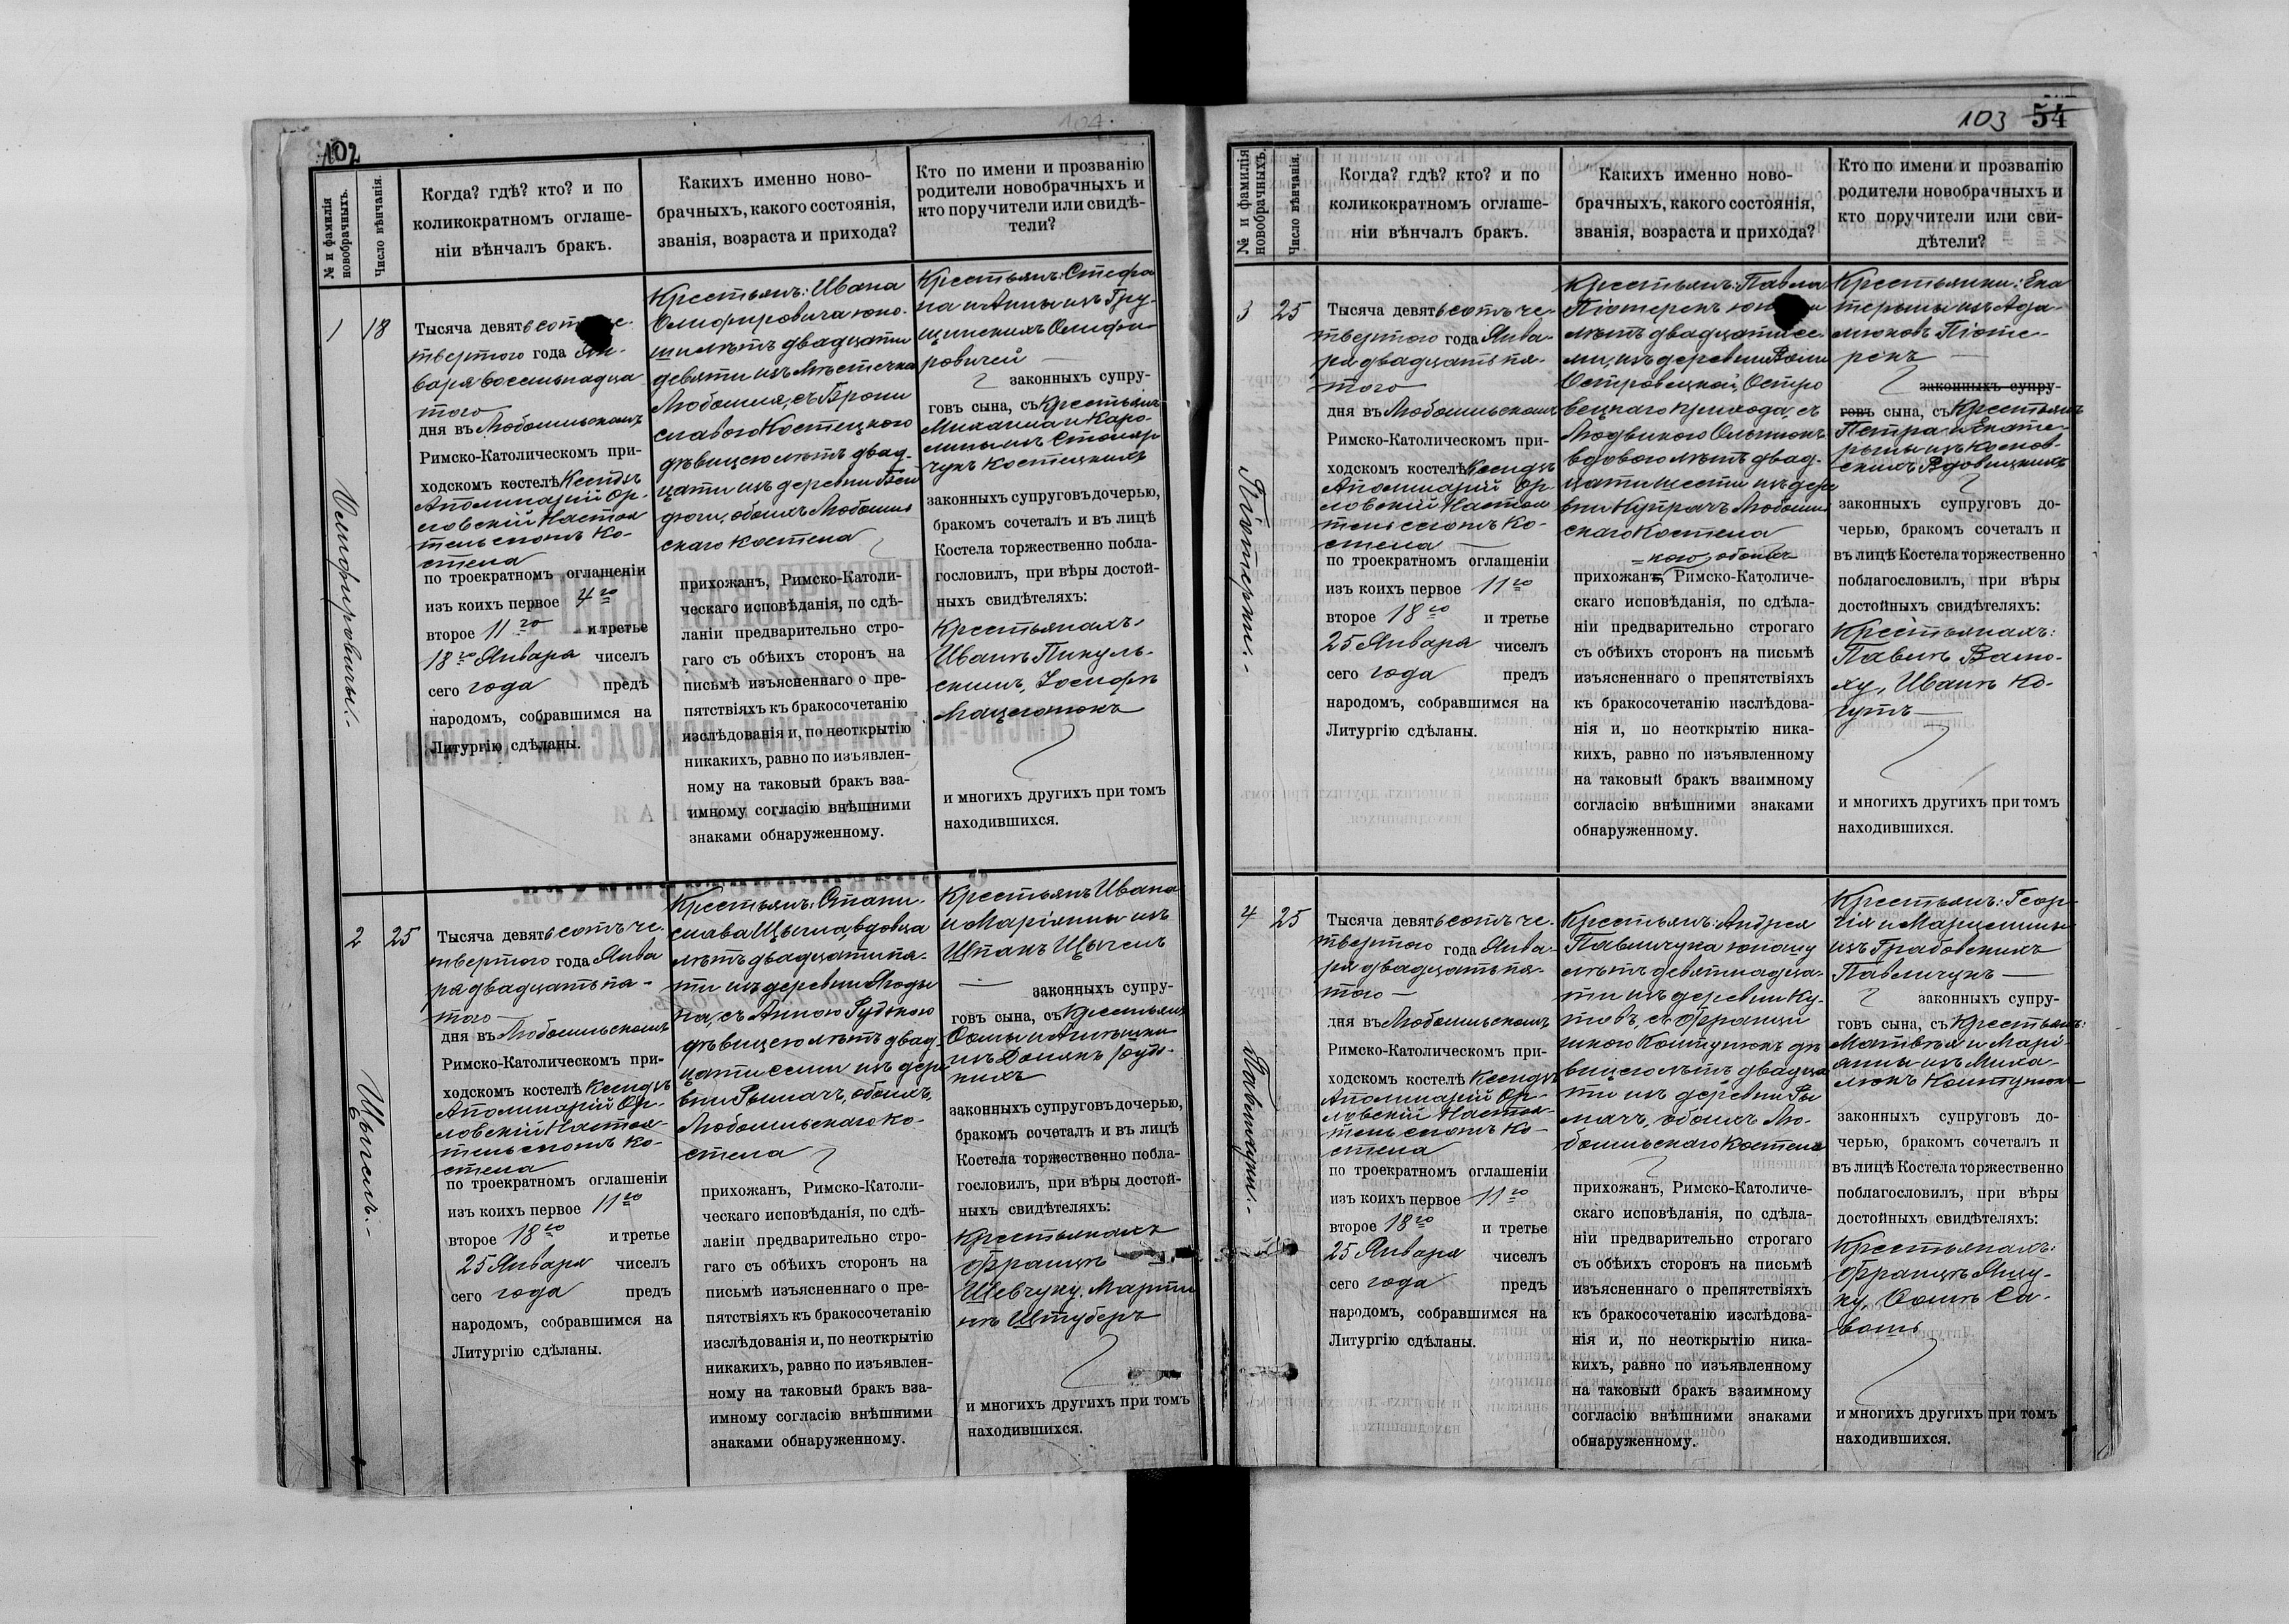 102
№ и фамилія
новобрачныхъ.
Число вѣнчанія.
Когда? гдѣ? кто? и по
коликократномъ оглаше-
ніи вѣнчалъ бракъ.
Какихъ именно ново-
брачныхъ, какого состоянія,
званія, возраста и прихода?
Кто по имени и прозванію
родители новобрачныхъ и
кто поручители или свидѣ-
тели?
1
18
Тысяча девятьсотъ че-
твертого года Ян-
варя восемнадца
того
дня въ Любомльскомъ
Римско-Католическомъ при-
ходскомъ костелѣ Ксендзъ
Аполинарій Ор-
ловскій Настоя
тель сного ко-
стела
по троекратномъ оглашеніи
изъ коихъ первое 4го
второе 11го и третье
18го Января чиселъ
сего года предъ
народомъ, собравшимся на
Литургію сдѣланы.
Крестьянъ: Ивана
Олифировича юно-
ши лѣтъ двадцати
девяти изъ мѣстечка
Любомля, съ Брони
славою Костецкою
дѣвицею лѣтъ двад-
цати изъ деревни
обоихъ Любомль
скаго костела
прихожанъ, Римско-Католи-
ческаго исповѣданія, по сдѣ-
ланіи предварительно стро-
гаго съ обѣихъ сторонъ на
письмѣ изъясненнаго о пре-
пятствіяхъ къ бракосочетанію
изслѣдованія и, по неоткрытію
никакихъ, равно по изъявлен-
ному на таковый бракъ вза-
имному согласію внѣшними
знаками обнаруженному.
Крестьянъ: Стефа
на и Анны изъ Гру-
щинскихъ Олифи
ровичей
законныхъ супру-
говъ сына, съ Крестьянъ
Михаила и Каро-
лины изъ Столяр
чукъ Костецкихъ
законныхъ супруговъ дочерью,
бракомъ сочеталъ и въ лицѣ
Костела торжественно побла-
гословилъ, при вѣры достой-
ныхъ свидѣтеляхъ:
Крестьянахъ
Иванѣ Пикуль-
скимъ, Іосифѣ
Мацеюкъ
и многихъ другихъ при томъ
находившихся.
2
25
Тысяча девятьсотъ че-
твертого года Янва
ря двадцать пя-
того
дня въ Любомльскомъ
Римско-Католическомъ при-
ходскомъ костелѣ Ксендзъ
Аполинарій Ор-
ловскій Настоя-
тель сного ко-
стела
по троекратномъ оглашеніи
изъ коихъ первое 11го
второе 18го и третье
25 Января чиселъ
сего года предъ
народомъ, собравшимся на
Литургію сдѣланы.
Щыгель.
Крестьянъ: Стани-
слава Щыгла, вдовца
лѣтъ двадцати пя-
ти изъ деревни Ягоды
на, съ Анною Рудзкою
дѣвицею лѣтъ двад-
цати семи изъ дере
вни Рымачъ, обоихъ
Любомльскаго ко-
стела
прихожанъ, Римско-Католи-
ческаго исповѣданія, по сдѣ-
ланіи предварительно стро-
гаго съ обѣихъ сторонъ на
письмѣ изъясненнаго о пре-
пятствіяхъ къ бракосочетанію
изслѣдованія и, по неоткрытію
никакихъ, равно по изъявлен-
ному на таковый бракъ вза-
имному согласію внѣшними
знаками обнаруженному.
Крестьянъ Ивана
и Маріянны изъ
Шпакъ Щыгель
законныхъ супру-
говъ сына, съ Крестьянъ
Ѳомы и Агнешки
изъ
законныхъ супруговъ дочерью,
бракомъ сочеталъ и въ лицѣ
Костела торжественно побла-
гословилъ, при вѣры достой-
ныхъ свидѣтеляхъ:
Крестьянахъ
Францѣ
Шевчуку, Марти
нѣ Штуберъ
и многихъ другихъ при томъ
находившихся.
103 54
№ и фамилія
новобрачныхъ.
Число вѣнчанія.
Когда? гдѣ? кто? и по
коликократномъ оглаше-
ніи вѣнчалъ бракъ.
Какихъ именно ново-
брачныхъ, какого состоянія,
званія, возраста и прихода?
Кто по имени и прозванію
родители новобрачныхъ и
кто поручители или сви-
дѣтели?
3
25
Тысяча девятьсотъ че-
твертого года Янва-
ря двадцать пя-
того
дня въ Любомльскомъ
Римско-Католическомъ при-
ходскомъ костелѣ Ксендзъ
Аполинарій Ор-
ловскій Настоя
тель сного ко-
стела
по троекратномъ оглашеніи
изъ коихъ первое 11го
второе 18го и третье
25 Января чиселъ
сего года предъ
народомъ, собравшимся на
Литургію сдѣланы.
Крестьянъ: Павла
Піотерекъ
лѣтъ двадцати се
ми, изъ деревни Воли
Островецкой, Остро
вецкаго прихода, съ
Людвикою Ольшюкъ
вдовою лѣтъ двад-
цати шести изъ дере
вни Кутровъ Любомль
скаго костела
обоихъ
прихожанъ, Римско-Католиче-
скаго исповѣданія, по сдѣла-
ніи предварительно строгаго
съ обѣихъ сторонъ на письмѣ
изъясненнаго о препятствіяхъ
къ бракосочетанію изслѣдова-
нія и, по неоткрытію ника-
кихъ, равно по изъявленному
на таковый бракъ взаимному
согласію внѣшними знаками
обнаруженному.
Крестьянки: Ека
терины изъ Ада-
мюковъ Піоте-
рекъ
законныхъ супру-
говъ сына, съ Крестьянъ
Петра и Екате-
рины изъ
Вдовицкихъ
законныхъ супруговъ до-
черью, бракомъ сочеталъ и
въ лицѣ Костела торжественно
поблагословилъ, при вѣры
достойныхъ свидѣтеляхъ:
Крестьянахъ:
Павлѣ Вало-
ху, Иванѣ Ко-
гутъ
и многихъ другихъ при томъ
находившихся.
4
25
Тысяча девятьсотъ че-
твертого года Янва-
ря двадцать пя-
того
дня въ Любомльскомъ
Римско-Католическомъ при-
ходскомъ костелѣ Ксендзъ
Аполинарій Ор-
ловскій Настоя-
тель сного ко-
стела
по троекратномъ оглашеніи
изъ коихъ первое 11го
второе 18го и третье
25 Января чиселъ
сего года предъ
народомъ, собравшимся на
Литургію сдѣланы.
Крестьянъ: Андрея
Павличука юношу
лѣтъ девятнадца-
ти изъ деревни Ку-
товъ, съ Францы
шкою Колтунюкъ дѣ
вицею лѣтъ двадца
ти изъ деревни Ры
мачъ, обоихъ Лю-
бомльскаго костела
прихожанъ, Римско-Католиче-
скаго исповѣданія, по сдѣла-
ніи предварительно строгаго
съ обѣихъ сторонъ на письмѣ
изъясненнаго о препятствіяхъ
къ бракосочетанію изслѣдова-
нія и, по неоткрытію ника-
кихъ, равно по изъявленному
на таковый бракъ взаимному
согласію внѣшними знаками
обнаруженному.
Крестьянъ: Геор-
гія и Марцелины
изъ Грабовскихъ
Павличукъ
законныхъ супру-
говъ сына, съ Крестьянъ:
Матвѣя и Марі-
анны изъ Миха-
люкъ Колтунюкъ
законныхъ супруговъ до-
черью, бракомъ сочеталъ и
въ лицѣ Костела торжественно
поблагословилъ, при вѣры
достойныхъ свидѣтеляхъ:
Крестьянахъ:
Францѣ Ящу-
ку, Ѳомѣ Са-
вошь
и многихъ другихъ при томъ
находившихся.